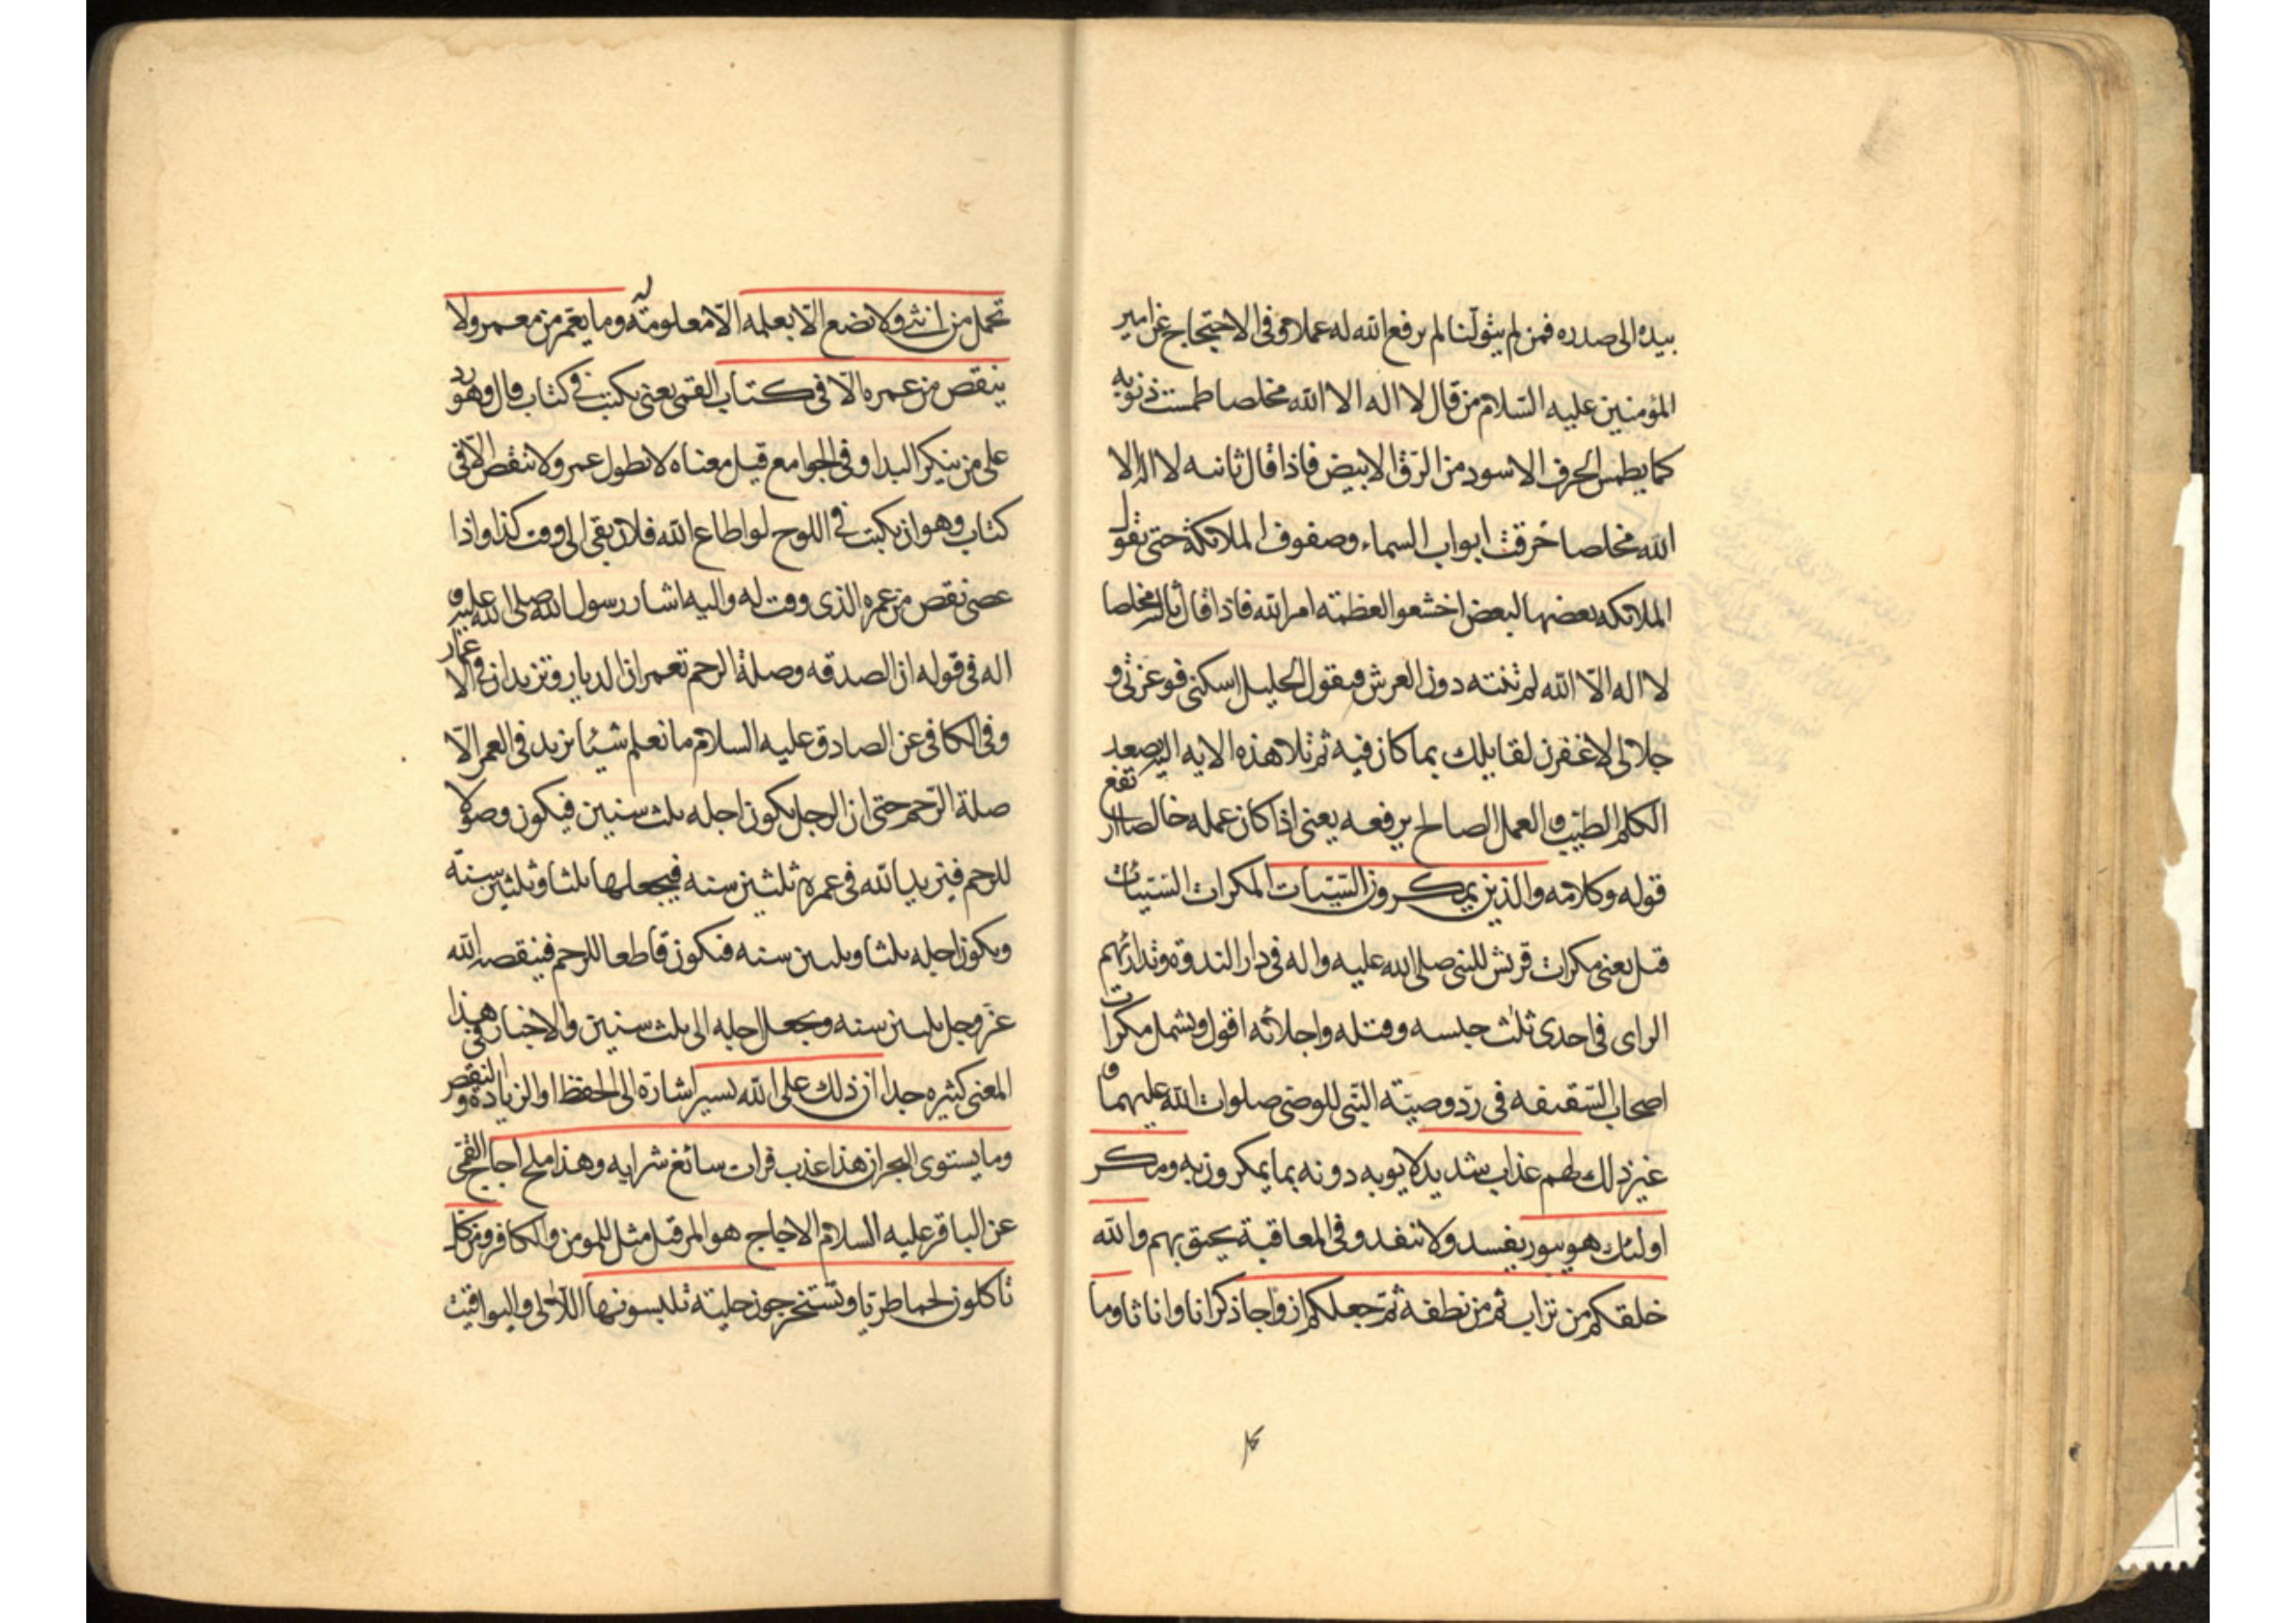 بيده الى صدره فمن لم يتولنا لم يرفع الله له عملا وفى الاحتجاج عن امير
المؤمنين عليه السّلام من قال لا اله الا الله مخلصا طمست ذنوبه
كما يطمس الحرف الاسود من الرّق الابيض فاذا قال ثانيه لا اله الا
الله مخلصا خرقت ابواب السماء وصفوف الملائكة حتى تقول
الملائكه بعضها لبعض اخشعوا لعظمته امر الله فاذا قال ثالثه مخلصا
لا اله الّا الله لم تنته دون العرش فيقول الجليل اسكنى فوعزتى و
جلالى لاغفرن لقايلك بما كان فيه ثم تلا هذه الايه اليه يصعد
الكلم الطيّب والعمل الصالح يرفعه يعنى اذا كان عمله خالصا ارتفع
قوله وكلامه والذين يمكرون السّيّئات المكرات السّيّئات
قيل يعنى مكرات قريش للنبى صلى الله عليه واله فى دار الندوة وتدارئهم
الراى فى احدى ثلث حبسه وقتله واجلائه اقول ويشمل مكرات
اصحاب السّقيفه فى ردّ وصيّة النّبى للوصى صلوات الله عليهما و
غير ذلك لهم عذاب شديد لا يوبه دونه بما يمكرون به ومكر
اولئك هو يبور يفسد ولا تنفد وفى المعاقبة يحيق بهم والله
خلقكم من تراب ثم من نطفة ثمّ جعلكم ازواجا ذكرانا واناثا وما
تحمل من انثى ولا تضع الّا بعلمه الّا معلومة له وما يعمّر من معمر ولا
ينقص من عمره الّا فى كتاب القمى يعنى يكتب فى كتاب قال وهو رد
على من ينكر البدا وفى الجوامع قيل معناه لا يطول عمر ولا ينقص الّا فى
كتاب وهو ان يكتب فى اللوح لو اطاع الله فلان بقى الى وقت كذا واذا
عصى نقص من عمره الذى وقت له واليه اشار رسول الله صلى الله عليه و
اله فى قوله ان الصدقه وصلة الرحم تعمران الديار وتزيدان فى الاعمار
وفى الكافى عن الصادق عليه السلام ما نعلم شيئا يزيد فى العمر الّا
صلة الرّحم حتى ان الرجل يكون اجله ثلث سنين فيكون وصولا
للرحم فيزيد الله فى عمره ثلثين سنه فيجعلها ثلثا وثلثين سنة
ويكون اجله ثلثا وثلثين سنه فيكون قاطعا للرحم فينقصه الله
عزّ وجل ثلثين سنه ويجعل اجله الى ثلث سنين والاخبار فى هذا
المعنى كثيره جدا ان ذلك على الله يسير اشارة الى الحفظ او الزيادة والنقص
وما يستوى البحران هذا عذب فرات سائغ شرابه وهذا ملح اجاج القمّى
عن الباقر عليه السلام الاجاج هو المر قيل مثل للمومن والكافر ومن كل
تاكلون لحما طريّا وتستخرجون حلية تلبسونها اللآلى واليواقيت